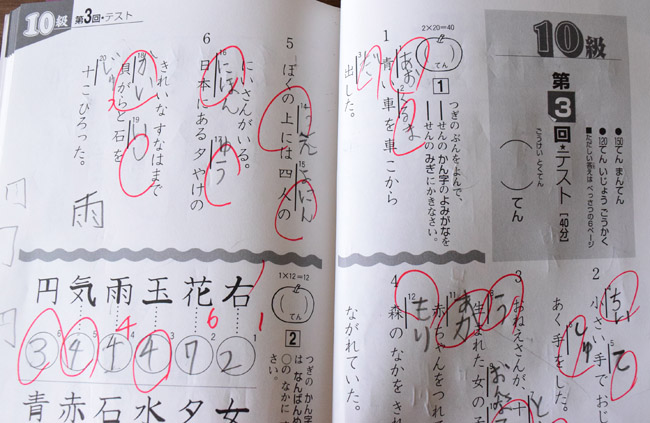 10級
第3回★テスト［40分］
●150てん まんてん
●120てん いじょう ごうかく
■ただしい答えは べっさつの6ページ
ごうけい とくてん
てん
2×20=40
てん
1
つぎの ぶんを よんで、
――せんの かん字の よみがなを
――せんの みぎに かきなさい。
1 青い 車を 車こから
あお
くるま
出した。
2 小さい 手で おじ
ちい
て
あく手をした。
しゅ
3 おねえさんが、十
生まれた 女の
う
赤ちゃんを つれて
あか
おんな
ながれていた。
4 森の なかを
もり
10級 第3回★テスト
5 ぼくの 上には 四人の
うえ
よにん
にいさんがいる。
6 日本に ある 夕やけの
にほん
ゆう
きれいな すなはまで
貝がらと 石を
かい
いし
十こ ひろった。
雨
円
円
1×12=12
12
てん
2
つぎの かん字
は なんばんめ
○の なかに
さい。
右 花 玉 雨 気 円
2 7 4 4 4 3
1 6 4
女 夕 水 石 赤 青